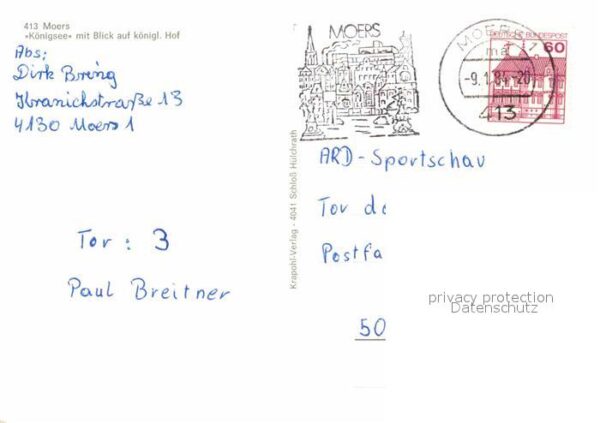 413 Moers
»Königsee« mit Blick auf königl. Hof
Abs:
Dirk Bring
Kranichstraße 13
4130 Moers 1
Tor: 3
Paul Breitner
Krapohl-Verlag - 4041 Schloß Hülchrath
MOERS
MOERS 1
ma
-9.1.84-20
413
DEUTSCHE BUNDESPOST
60
ARD-Sportschau
Tor de
Postfa
50
privacy protection
Datenschutz